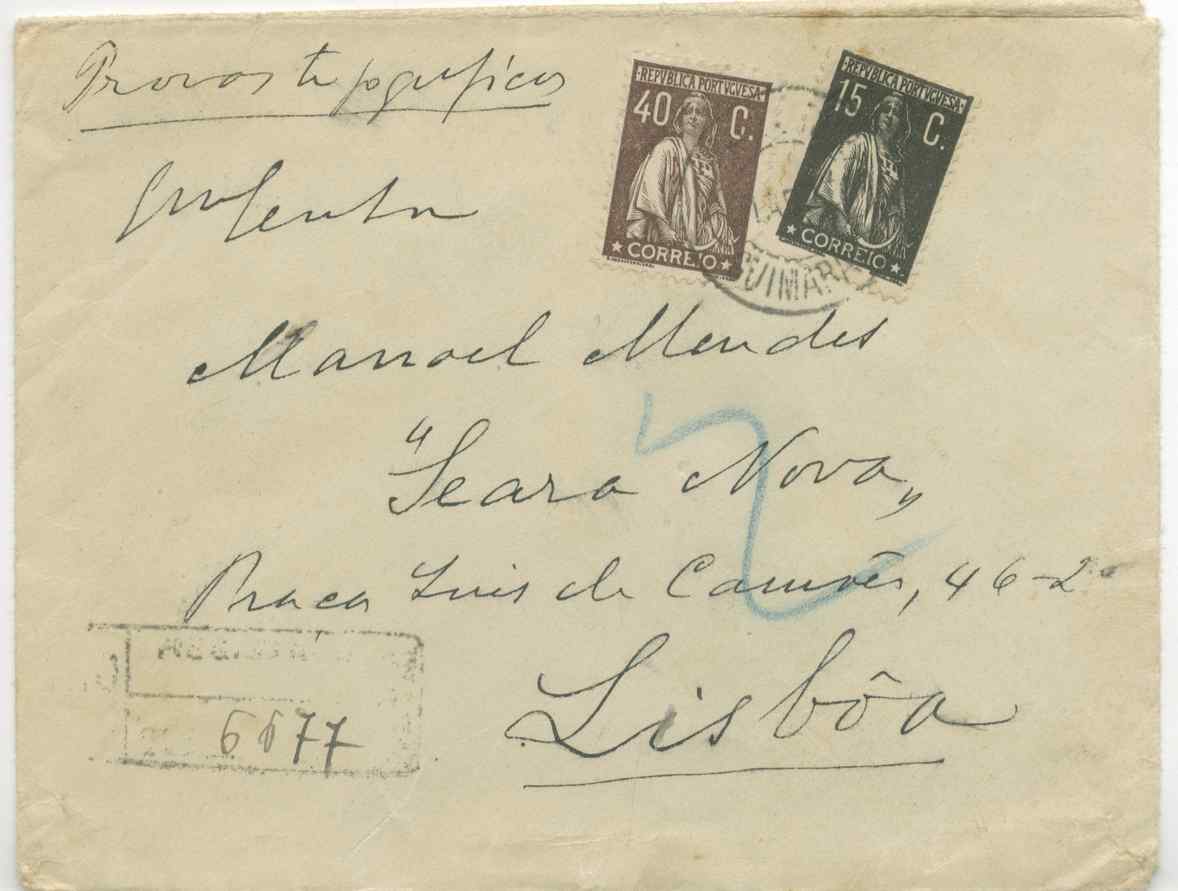 Provas tipograficas
REPVBLICA PORTVGVESA
40 C.
CORREIO
REPVBLICA PORTVGVESA
15 C.
CORREIO
GUIMARÃ
Manoel Mendes
"Seara Nova"
Praça Luis de Camões, 46-2º
REGIS
6677
Lisbôa